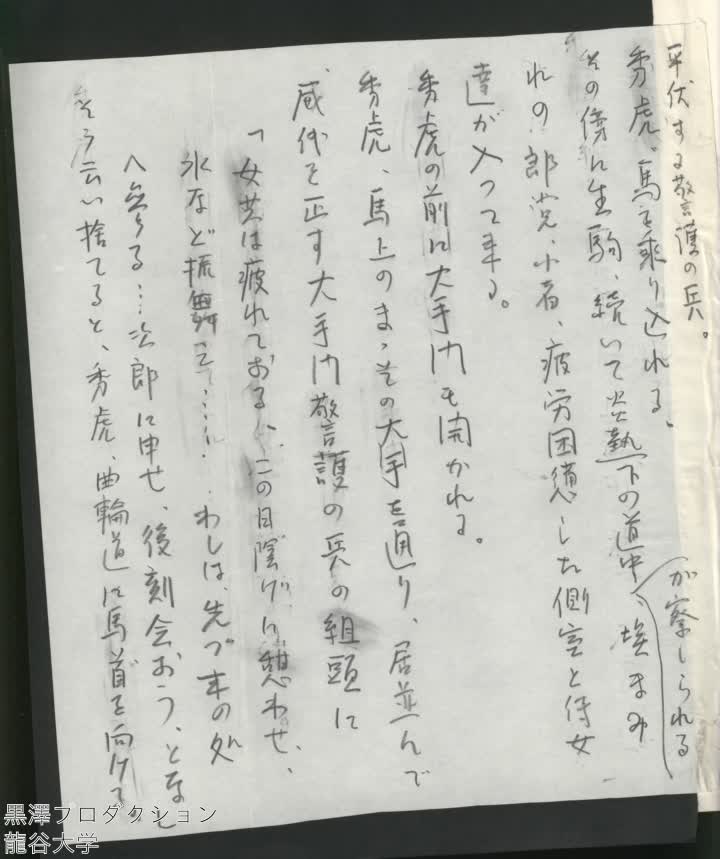 平伏する警護の兵。
秀虎、馬を乗り入れる、
その傍に生駒、続いて炎熱下の道中、埃まみ
が察しられる
れの郎党、小者、疲労困憊した側室と侍女
達が入って来る。
秀虎の前に大手門も開かれる。
秀虎、馬上のまゝその大手を通り、居並んで
威儀を正す大手門警護の兵の組頭に
「女共は疲れておる、この日蔭げに憩わせ、
水など振舞え……わしは、先づ末の処
へ参る…次郎に申せ、後刻会おう、とな」
そう云い捨てると、秀虎、曲輪道に馬首を向けて
黒澤プロダクション
龍谷大学